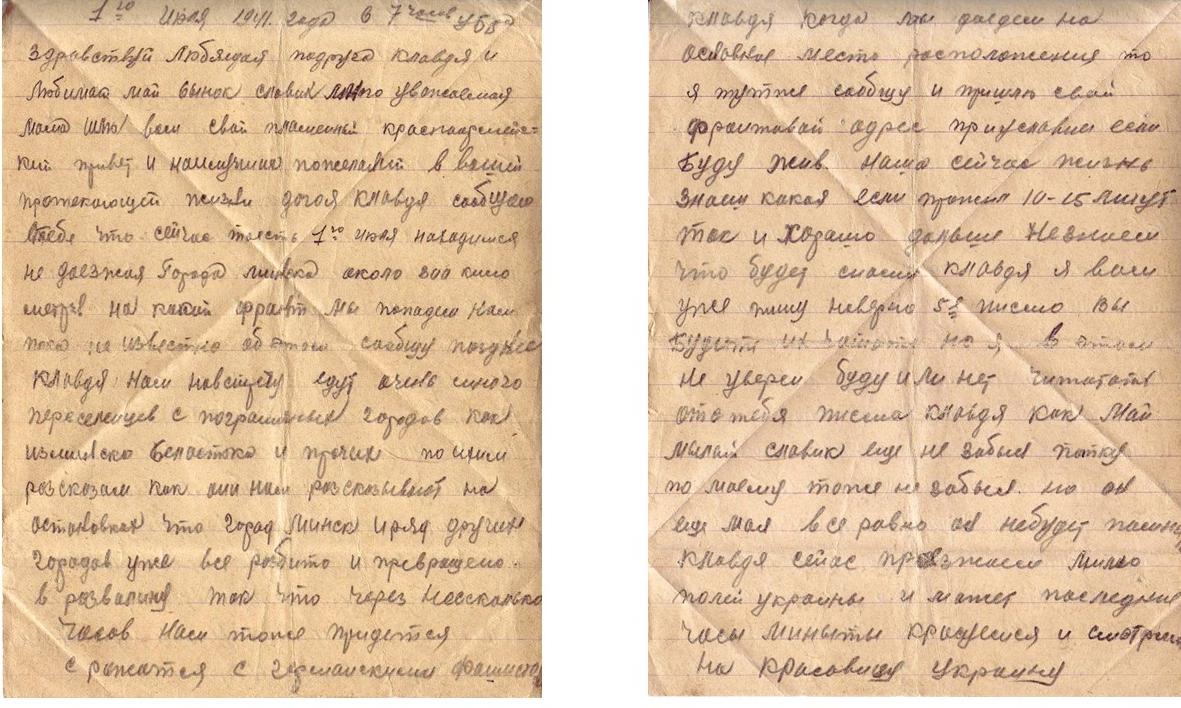 1го Июля 1941 года в 7 часов
Здравствуй Любящая подруга Клавдя и
Любимай май сынок славик уважаемая
мама шлю вам свай пламенный краснаармейс-
кий привет и наилучших пожеланий в вашей
протекающей жизни Клавдя сообщаю
тебе что сейчас тоесть 1го июля находимся
не доезжая Города минска около кило
метров на какой франьт мы попадем нам
пока не известно об этом сообщу позднее
Клавдя нам навстречу едут очень много
переселенцев с пограничных городов как
изминска Беластока и прочих по ихим
розсказам как они нам розсказывают на
остановках что Город Минск и ряд других
Городов уже все розбито и превращено
в розвалину так что через Нессколько
Часов нам тоже придется
с ражатся с германскими
Клавдя когда мы доедем на
основное место росположения то
я тутже сообщу и пришлю свай
фронтавай адрес приуславии если
Буду жив наша сейчас жизнь
знаеш какая если прожил 10-15 минут
так и хорашо дальше Незнаем
что будет снами Клавдя я вам
уже пишу наверно 5е писмо вы
Будите их но я в этом
не уверен буду или нет читатать
ототебя писма Клавдя как май
милай славик еще не забыл папку
по моему тоже не забыл но он
еще мал все равно он небудет
Клавдя сейчас проезжаем мимо
полей украины и может последние
часы миныты красуемся и смотрим
на красавицу украину